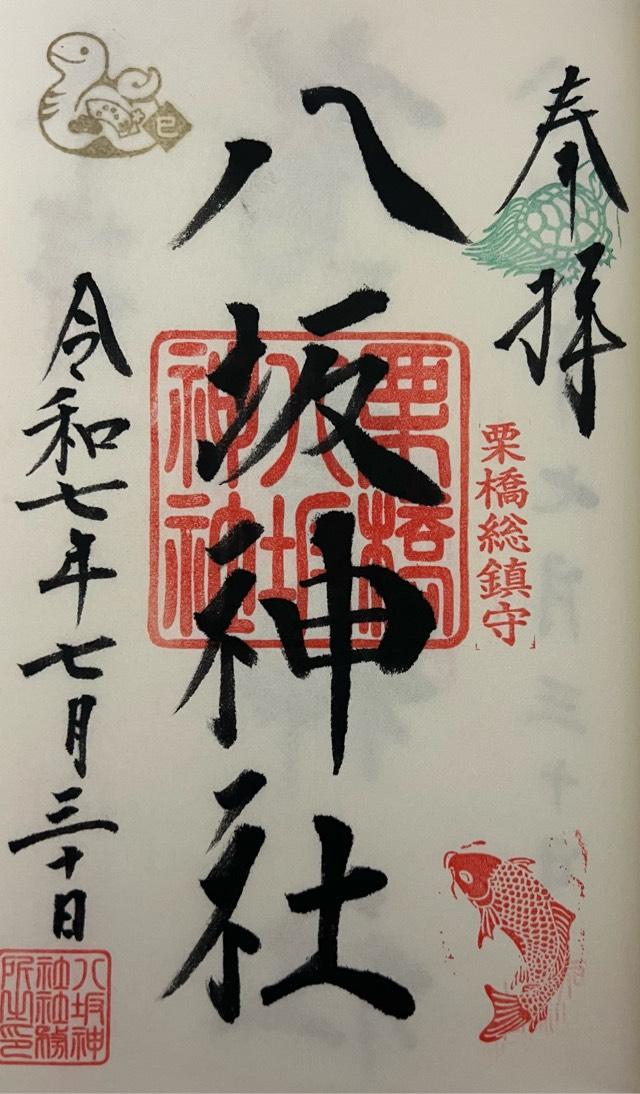 奉拝
栗橋総鎮守
八坂神社
栗橋
八坂
神社
令和七年七月三十日
巳
八坂神
社社務
所之印